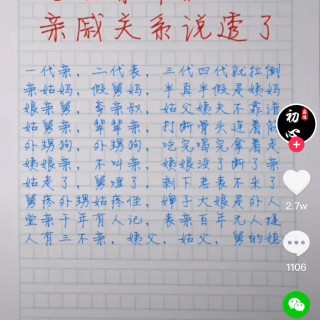 亲戚关系说透了
一代亲，二代表，三代四代就拉倒
亲姑妈，假舅妈，半真半假是姨妈
娘亲舅，爹亲叔，姑父姨夫不靠谱
姑舅亲，辈辈亲，打断骨头连着筋
外甥狗，外甥狗，吃完喝完拿着走
姨娘亲，不叫亲，姨娘没了断了亲
姑走了，舅埋了，剩下老表不来了
舅疼外甥姑疼侄，婶子大娘是外人
堂亲千年有人记，表亲百年无人提
人有三不亲，姨父，姑父，舅的媳
初心
2.7w
1106